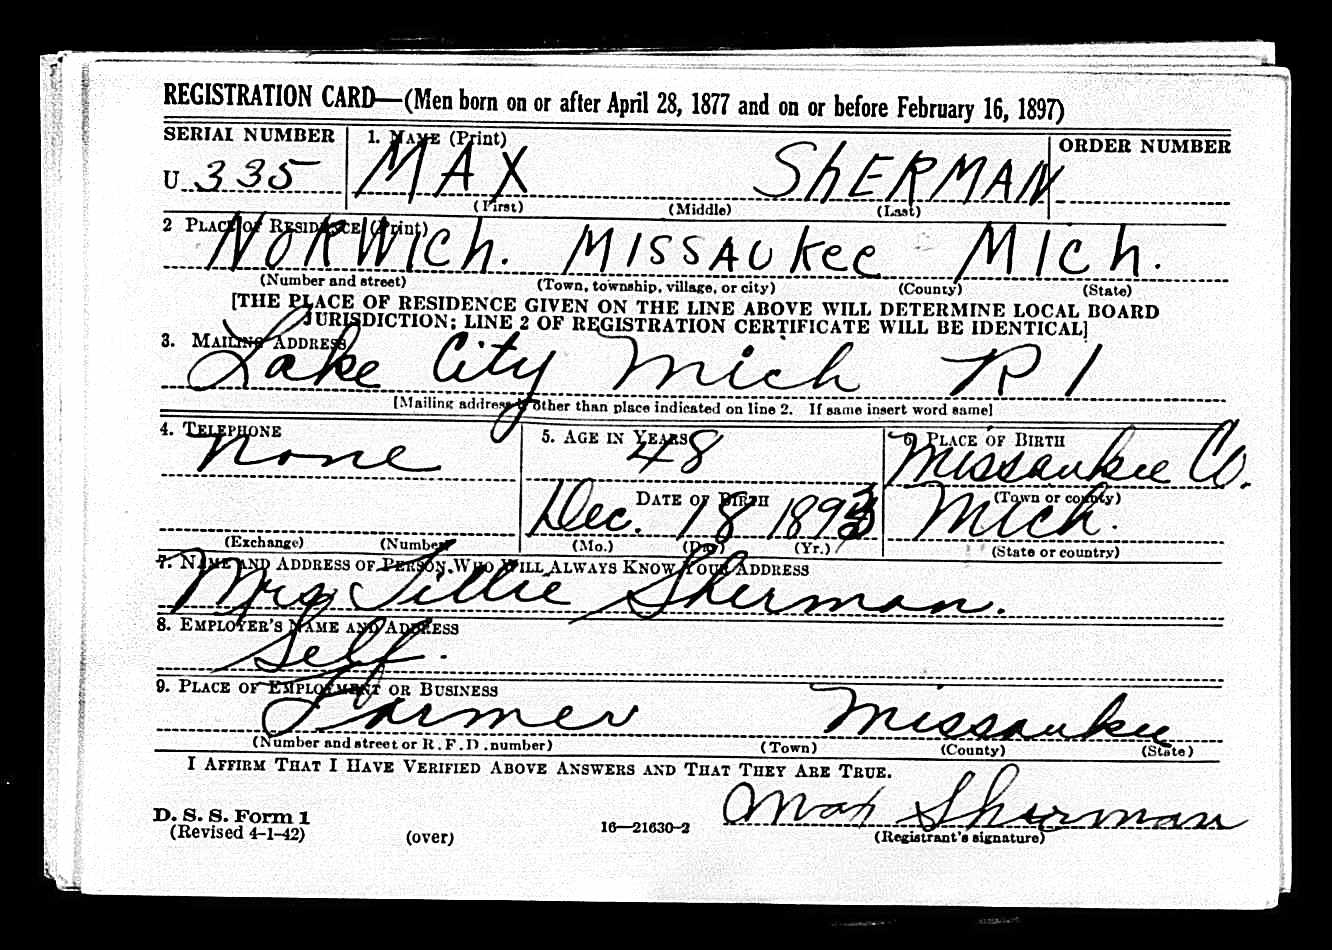 REGISTRATION CARD—(Men born on or after April 28, 1877 and on or before February 16, 1897)
SERIAL NUMBER 1. NAME (Print) ORDER NUMBER
U 335 MAX SHERMAN
(First) (Middle) (Last)
2 PLACE OF RESIDENCE (Print)
NORWICH. MISSAUKEE MICH.
(Number and street) (Town, township, village, or city) (County) (State)
[THE PLACE OF RESIDENCE GIVEN ON THE LINE ABOVE WILL DETERMINE LOCAL BOARD
JURISDICTION; LINE 2 OF REGISTRATION CERTIFICATE WILL BE IDENTICAL]
3. MAILING ADDRESS
Lake City Mich R 1
[Mailing address if other than place indicated on line 2. If same insert word same]
4. TELEPHONE 5. AGE IN YEARS 6. PLACE OF BIRTH
None 48 Missaukee Co.
DATE OF BIRTH (Town or county)
Dec. 18 1893 Mich.
(Exchange) (Number) (Mo.) (Day) (Yr.) (State or country)
7. NAME AND ADDRESS OF PERSON WHO WILL ALWAYS KNOW YOUR ADDRESS
Mrs Tillie Sherman.
8. EMPLOYER'S NAME AND ADDRESS
Self.
9. PLACE OF EMPLOYMENT OR BUSINESS
Farmer Missaukee
(Number and street or R. F. D. number) (Town) (County) (State)
I AFFIRM THAT I HAVE VERIFIED ABOVE ANSWERS AND THAT THEY ARE TRUE.
Max Sherman
D. S. S. Form 1
(Revised 4-1-42) (over) 16—21630-2 (Registrant's signature)